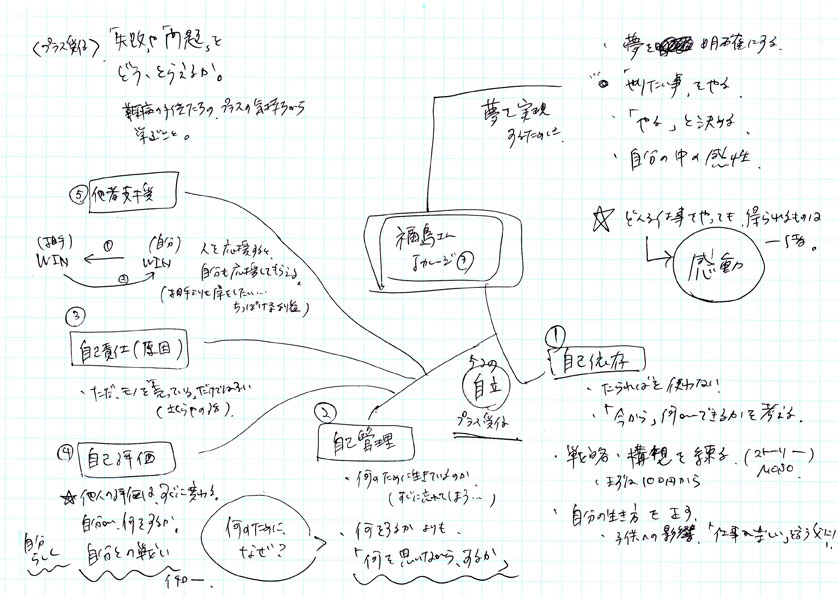 〈プラス受信〉
「失敗」や「問題」を
どう、とらえるか。
難病の子供たちの、プラスの気持ちから
学ぶこと。
夢を実現
するために
・夢を 明確にする
・「やりたい事」をやる
・「やる」と決める
・自分の中の感性
☆どんな仕事でやっても、得られるものは
一緒。
感動
福島正伸
カレッジ③
5つの
自立
プラス受信
① 自己依存
・たらればを使わない
・「今から」何ができるかを考える
・戦略・構想を練る (ストーリー)
・まずは100円から
・自分の生き方を正す
・子供への影響
② 自己管理
・何のために生きているのか
(すぐに忘れてしまう…)
・何をするかよりも
「何を思いながら、するか」
何のために
なぜ?
③ 自己責任(原因)
・ただ、モノを売っている、だけではない
④ 自己評価
☆他人の評価は、すぐに変わる。
自分が、何をするか。
自分との戦い
自分
らしく
⑤ 他者支援
(相手) WIN ① (自分) WIN
②
人を応援すると、
自分も応援してもらえる。
(相手よりも得をしたい…
ちっぽけな利益)